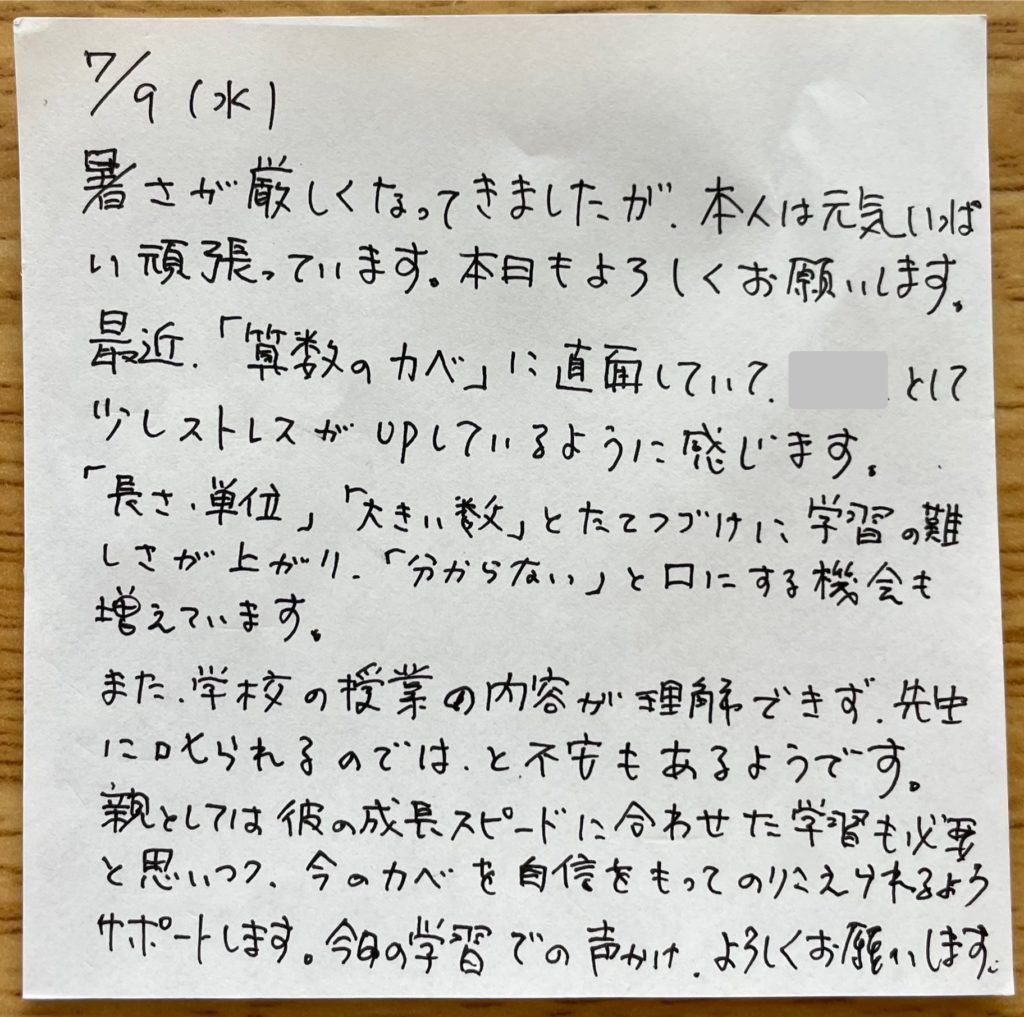 7/9 (水)
暑さが厳しくなってきましたが、本人は元気いっぱ
い頑張っています。本日もよろしくお願いします。
最近、「算数のカベ」に直面していて、 として
少しストレスがUPしているように感じます。
「長さ・単位」「大きい数」とたてつづけに学習の難
しさが上がり、「分からない」と口にする機会も
増えています。
また、学校の授業の内容が理解できず、先生
に叱られるのでは、と不安もあるようです。
親としては彼の成長スピードに合わせた学習も必要
と思いつつ、今のカベを自信をもってのりこえられるよう
サポートします。今日の学習での声かけ、よろしくお願いします。